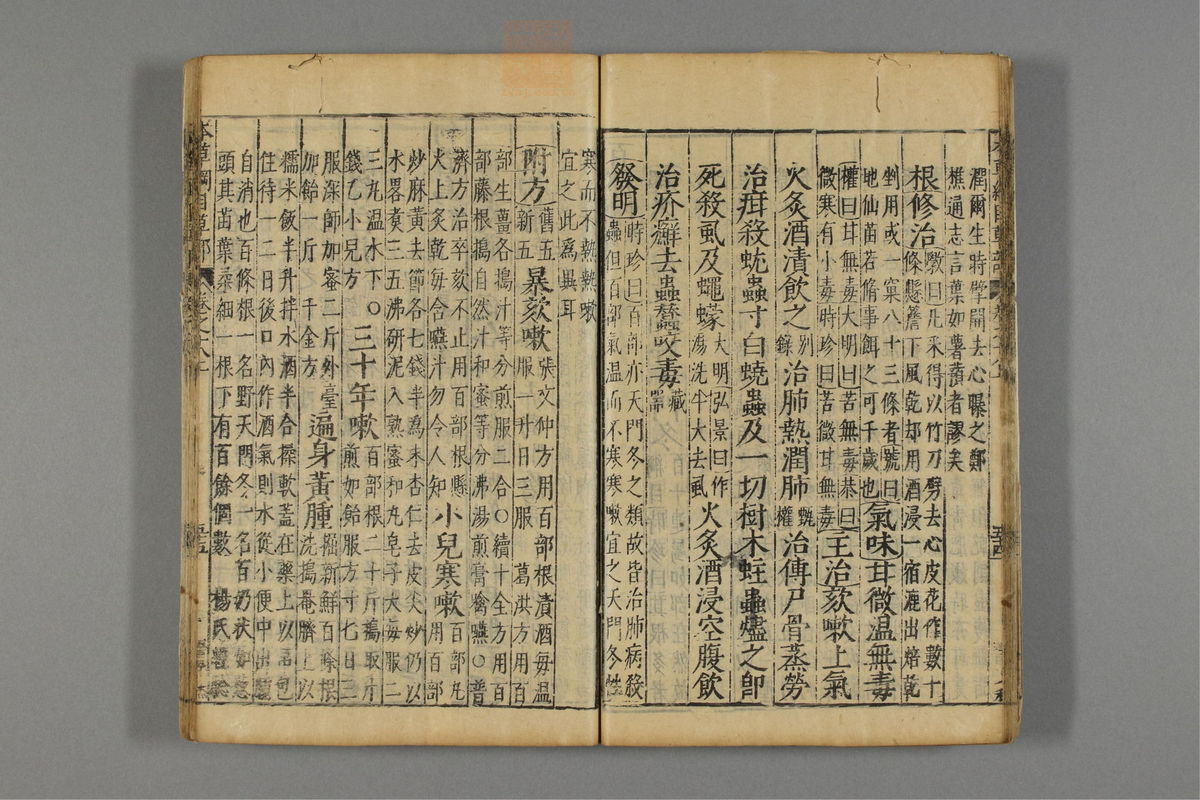 潤爾生時擘開去心曝之鄭
樵通志言葉如薯蕷者謬矣
根修治斅曰凡采得以竹刀劈去心皮花作數十
條懸簷下風乾却用酒浸一宿漉出焙乾
剉用或一窠八十三條者號曰
地仙苗若脩事餌之可千歲也氣味甘微温無毒
權曰甘無毒大明曰苦無毒恭曰
微寒有小毒時珍曰苦微甘無毒主治欬嗽上氣
火炙酒漬飲之别錄治肺熱潤肺甄權治傳尸骨蒸勞
治疳殺蚘蟲寸白蟯蟲及一切樹木蛀蟲燼之卽
死殺虱及蠅蠓大明弘景曰作湯洗牛犬去虱火炙酒浸空腹飲
治疥癬去蟲蠶咬毒藏器
發明時珍曰百部亦天門冬之類故皆治肺病殺
蟲但百部氣温而不寒寒嗽宜之天門冬性
寒而不熱熱嗽
宜之此爲異耳
附方舊五新五暴欬嗽張文仲方用百部根漬酒每温
服一升日三服 葛洪方用百
部生薑各搗汁等分煎服二合○續十全方用百
部藤根搗自然汁和蜜等分沸湯煎膏噙嚥○普
濟方治卒欬不止用百部根懸
火上炙乾每含嚥汁勿令人知小兒寒嗽百部丸用百部
炒麻黃去節各七錢半爲末杏仁去皮尖炒仍以
水畧煑三五沸研泥入熟蜜和丸皂子大每服二
三丸温水下○
錢乙小兒方三十年嗽百部根二十斤搗取汁
煎如飴服方寸匕日三
服深師加蜜二斤外臺
加飴一斤 千金方遍身黃腫掘新鮮百條根
洗搗罨臍上以
糯米飯半升拌水酒半合揉軟葢在藥上以帛包
住待一二日後口內作酒氣則水從小便中出腫
自消也百條根一名野天門冬一名百奶狀如葱
頭其苗葉柔細一根下有百餘個數 楊氏
本草綱目草部